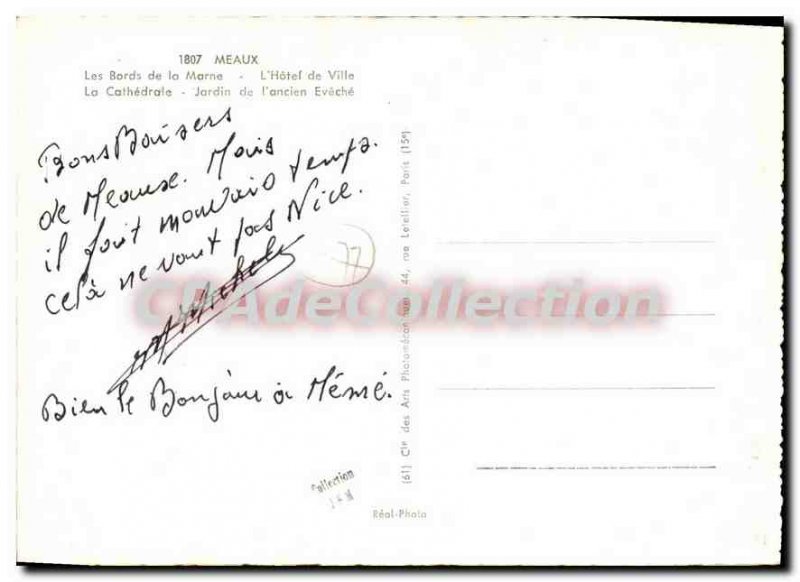 1807 MEAUX
Les Bords de la Marne - L'Hôtel de Ville
La Cathédrale - Jardin de l'ancien Evêché
Bons Baisers
de Meaux. Mais
il fait mauvais temps.
celà ne vaut pas Nice.
77
CPAdeCollection
Bien le Bonjour à Mémé.
(61) Cie des Arts Photomécaniques, 44, rue Letellier, Paris (15e)
Collection
Réal-Photo